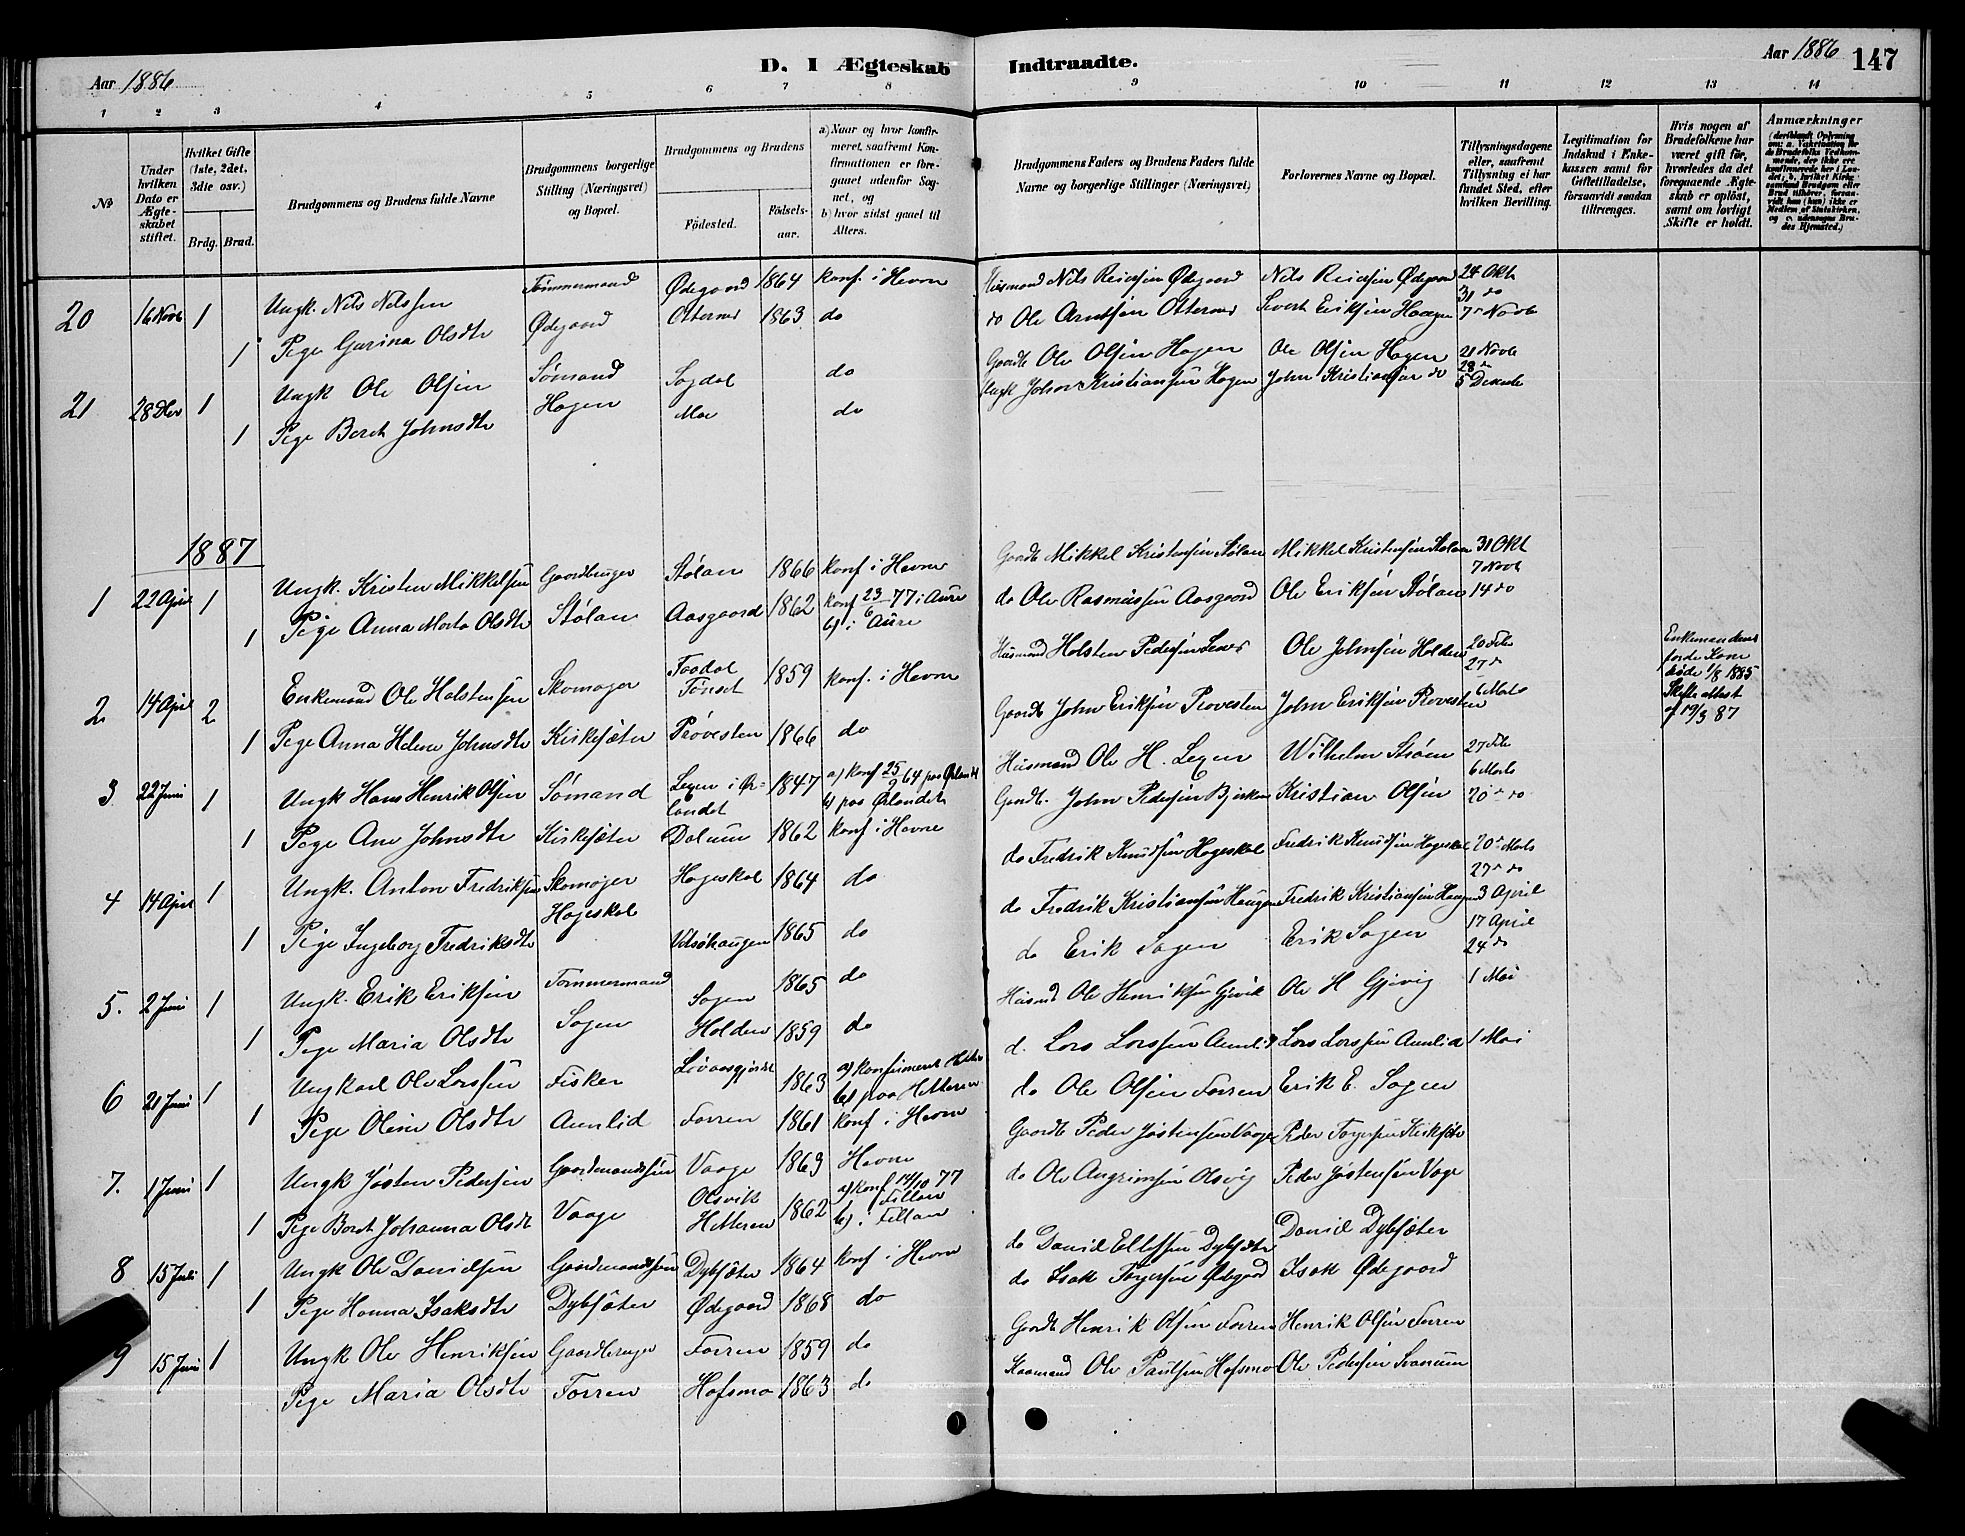 Aar 1886
D. I Ægteskab Indtraadte.
Aar 1886 147
1 2 3 4 5 6 7 8 9 10 11 12 13 14
No
Under hvilken Dato er Ægteskabet stiftet.
Hvilket Gifte (1ste, 2det, 3die osv.)
Brdg. Brud.
Brudgommens og Brudens fulde Navne
Brudgommens borgerlige Stilling (Næringsvei) og Bopæl.
Brudgommens og Brudens
Födested. Födselsaar.
a) Naar og hvor konfirmeret, saafremt Konfirmationen er foregaaet udenfor Sognet, og
b) hvor sidst gaaet til Alters.
Brudgommens Faders og Brudens Faders fulde Navne og borgerlige Stillinger (Næringsvei)
Forlovernes Navne og Bopæl.
Tillysningsdagene eller, saafremt Tillysning ei har fundet Sted, efter hvilken Bevilling.
Legitimation for Indskud i Enkekassen samt for Giftetilladelse, forsaavidt saadan tiltrænges.
Hvis nogen af Brudefolkene har været gift för, hvorledes da det foregaaende Ægteskab er oplöst, samt om lovligt Skifte er holdt.
Anmærkninger
20 16 Novb 1 Ungk. Nils Nilssen Tømmermand Ødegaard 1864 konf. i Hevne Husmand Nils Reiersen Ødegaard Nils Reiersen Ødegaard 24 Okt
31 do
1 Pige Gurina Olsdtr Ødegaard Otternes 1863 do do Ole Arntsen Otternes Sivert Eriksen Haagen 7 Novb
21 28 Dec 1 Ungk Ole Olsen Sømand Sagdal do Gaardbr Ole Olsen Hagen Ole Olsen Hagen 21 Novb
28
1 Pige Beret Johnsdtr Hagen Moe do Ungk John Kristiansen Hagen John Kristiansen do 5 Decebr
1887
1 22 April 1 Ungk. Kristen Mikkelsen Gaardbruger Stølan 1866 konf i Hevne Gaardb Mikkel Kristensen Stølan Mikkel Kristensen Stølan 31 Okt
7 Novb
1 Pige Anna Marta Olsdtr Stølan Aasgaard 1862 konf 23/6 77 i Aure
b) i Aure do Ole Rasmussen Aasgaard Ole Eriksen Stølan 14 do
2 14 April 2 Enkemand Ole Holstensen Skomager Taadal
Tønset 1859 konf. i Hevne Husmand Holsten Pedersen Ole Johnsen Holden 20 Febr
27
Enkemandens
forrige Kone
døde 1/8 1885
Skifteattest
af 19/3 87
1 Pige Anna Helene Johnsdtr Kirksæter Prøvesten 1866 do Gaardb John Eriksen Prøvesten John Eriksen Prøvesten 6 Marts
3 22 Juni 1 Ungk Hans Henrik Olsen Sømand Lexen i Ørlandet 1847 a) konf 25/9 64 paa Ørlandet
b) paa Ørlandet Husmand Ole H. Lexen Wilhelm Strøm 27 Febr
6 Marts
1 Pige Ane Johnsdtr Kirksæter Dalum 1862 konf i Hevne Gaardb. John Pedersen Bjerken Kristian Olsen 20 do
4 14 April 1 Ungk. Anton Fredriksen Skomager Hageskal 1864 do do Fredrik Knudsen Hageskal Fredrik Knudsen Hageskal 20 Marts
27 do
1 Pige Ingeborg Fredriksdtr Hageskal Utsøhaugen 1865 do do Fredrik Kristiansen Haugen Fredrik Kristiansen Haugen 3 April
5. 2 Juni 1 Ungk. Erik Eriksen Tømmermand Sagen 1865 do do Erik Sagen Erik Sagen 17 April
24 do
1 Pige Maria Olsdtr Sagen Holden 1859 do Husmd Ole Henriksen Gjevik Ole H Gjevig 1 Mai
6 21 Juni 1 Ungkarl Ole Larssen Fisker 1863 a) konfirmeret Hitteren
b) paa Hitteren d. Lars Larssen Aunlid Lars Larssen Aunlid 1 Mai
1 Pige Oline Olsdtr Aunlid Forren 1861 konf. i Hevne do Ole Olsen Forren Erik E. Sagen
7. 1 Juni 1 Ungk Josten Pedersen Gaardmandssøn Vaage 1863 Hevne Gaardb Peder Jostensen Vaage Peder Torgersen Kirksæter
1 Pige Beret Johanna Olsdt Vaage Olsvik
Hitteren 1862 a) konf 14/10 77 Fillan
b) i Fillan do Ole Angrimsen Olsvig Peder Jostensen Vage
8 15 Juli 1 Ungk Ole Danielsen Gaardmandssøn Dybsæter 1864 konf i Hevne do Daniel Ellefsen Dybsæter Daniel Dybsæter
1 Pige Hanna Isaksdtr Dybsæter Ødegaard 1868 do do Isak Torgersen Ødegaard Isak Ødegaard
9 15 Juni 1 Ungk Ole Henriksen Gaardbruger Forren 1859 do Gaardb Henrik Olsen Forren Henrik Olsen Forren
1 Pige Maria Olsdtr Forren Hofsmo 1863 do Ole Paulsen Hofsmo Ole Pedersen Svanum